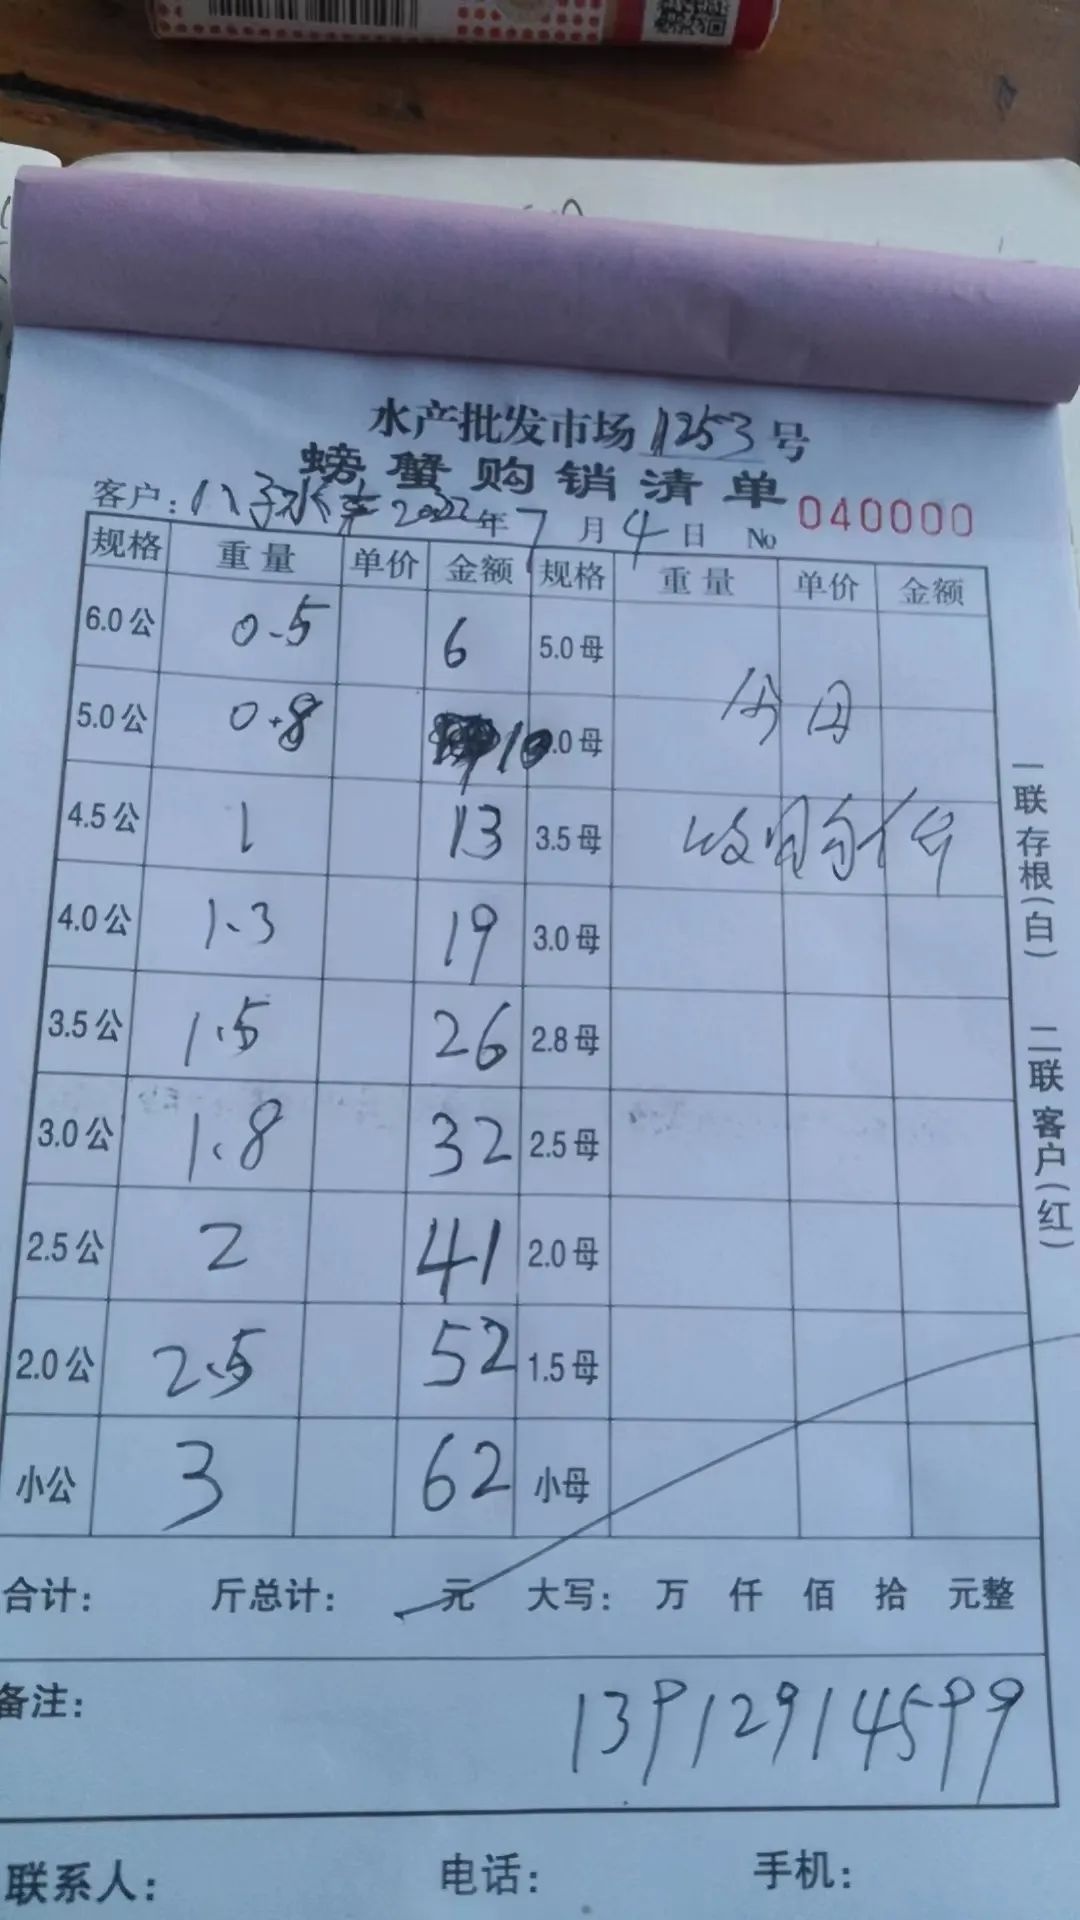 水产批发市场 1253 号
螃蟹购销清单
客户: 2022年7月4日 No 040000
规格 重量 单价 金额 规格 重量 单价 金额
6.0公 0.5 6 5.0母
5.0公 0.8 10 .0母 公 母
4.5公 1 13 3.5母 收购价
4.0公 1.3 19 3.0母
3.5公 1.5 26 2.8母
3.0公 1.8 32 2.5母
2.5公 2 41 2.0母
2.0公 2.5 52 1.5母
小公 3 62 小母
合计: 斤总计: 元 大写: 万 仟 佰 拾 元整
备注: 13912914599
联系人: 电话: 手机:
一联存根(白) 二联客户(红)